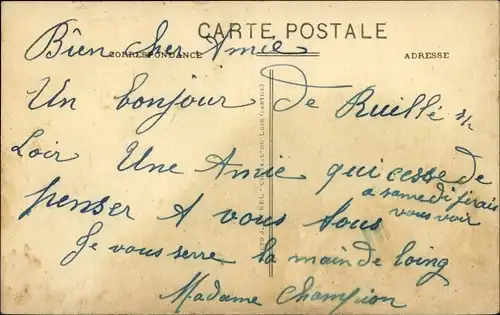 CARTE POSTALE
Bien cher Amie
CORRESPONDANCE
ADRESSE
Un bonjour de Ruillé s/
Loir Une Amie qui cesse de
penser A vous tous
a samedi j'irais
vous voir
Je vous serre la main de loing
Madame Champion
DU-LOIR (SARTHE)